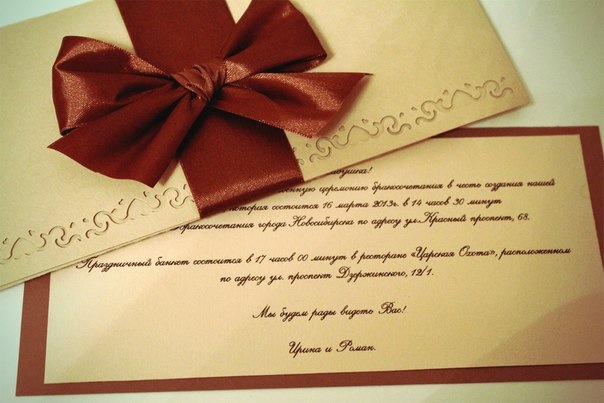 бабушка!
церемонию бракосочетания в честь создания нашей
которая состоится 16 марта 2013г. в 14 часов 30 минут
бракосочетания города Новосибирска по адресу ул.Красный проспект, 68.
Праздничный банкет состоится в 17 часов 00 минут в ресторане «Царская Охота», расположенном
по адресу ул. проспект Дзержинского, 12/1.
Мы будем рады видеть Вас!
Ирина и Роман.